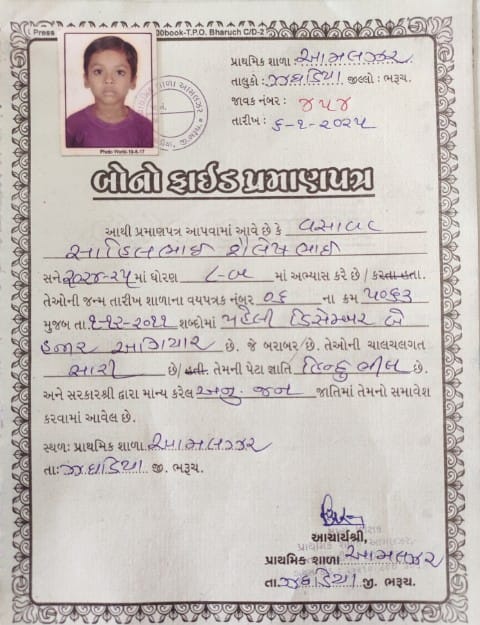 Press 00book-T.P.O. Bharuch C/D-2
પ્રાથમિક શાળા આમલઝર
તાલુકો : ઝઘડિયા જીલ્લો : ભરૂચ.
જાવક નંબર : ૪૫૪
તારીખ : ૬-૧-૨૦૨૫
Photo World-19-6-17
બોનોફાઈડ પ્રમાણપત્ર
આથી પ્રમાણપત્ર આપવામાં આવે છે કે વસાવા
સાહિલભાઈ શૈલેષભાઈ
સને ૨૦૨૪-૨૫ માં ધોરણ ૮-બ માં અભ્યાસ કરે છે / કરતા હતા.
તેઓની જન્મ તારીખ શાળાના વયપત્રક નંબર ૦૬ ના ક્રમ ૫૦૬૩
મુજબ તા ૧-૧૨-૨૦૧૧ શબ્દોમાં પહેલી ડિસેમ્બર બે
હજાર અગિયાર છે. જે બરાબર છે. તેઓની ચાલચલગત
સારી છે/ હતી. તેમની પેટા જ્ઞાતિ હિન્દુ ભીલ છે.
અને સરકારશ્રી દ્વારા માન્ય કરેલ અનુ. જન જાતિમાં તેમનો સમાવેશ
કરવામાં આવેલ છે.
સ્થળ: પ્રાથમિક શાળા આમલઝર
તા: ઝઘડિયા જી. ભરૂચ.
આચાર્યશ્રી,
પ્રાથમિક શાળા આમલઝર
તા. ઝઘડિયા જી. ભરૂચ.